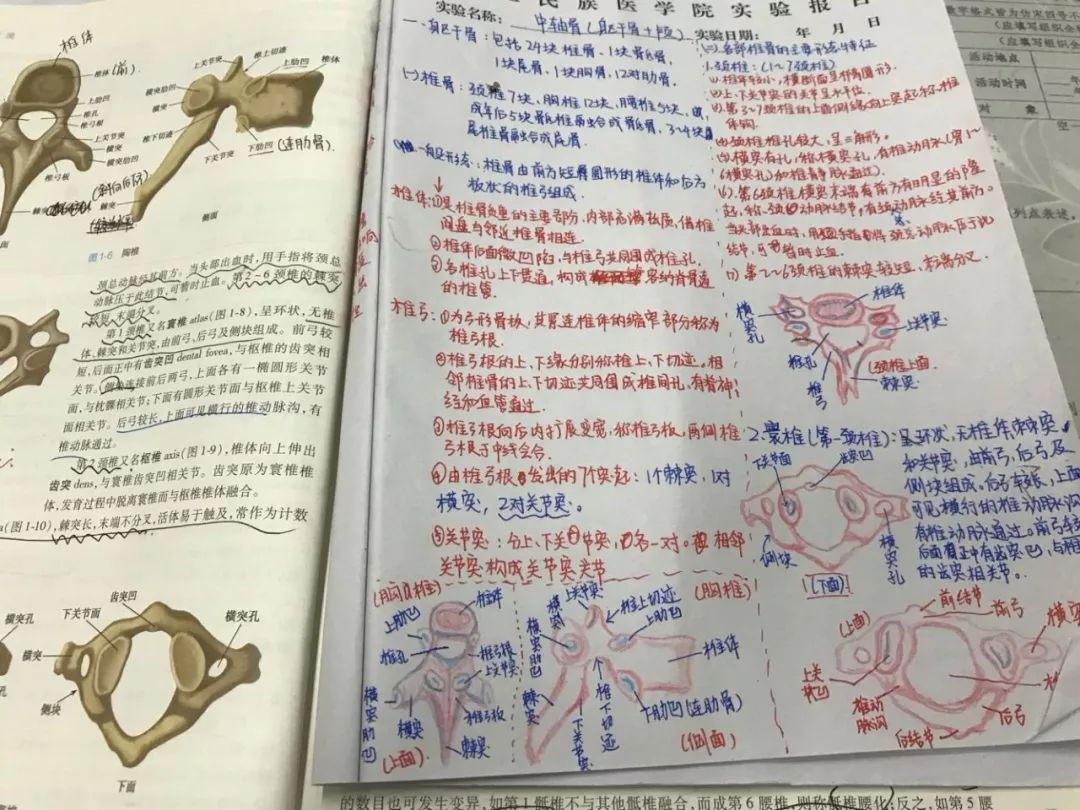 椎体
椎体(前)
上肋凹
椎孔
椎弓根
上关节突
横突
横突肋凹
椎弓板
棘突
上关节突
椎上切迹
上肋凹
椎体
横突肋凹
横突
椎下切迹
下关节突
下肋凹(连肋骨)
(斜向后后)
棘突
侧面
图1-6 胸椎
颈总动脉经其前方。当头部出血时,用手指将颈总
动脉压于此结节,可暂时止血。第2~6颈椎的棘突
较短,末端分叉。
第1颈椎又名寰椎 atlas(图1-8),呈环状,无椎
体、棘突和关节突,由前弓、后弓及侧块组成。前弓较
短,后面正中有齿突凹 dental fovea,与枢椎的齿突相
关节。侧块连接前后两弓,上面各有一椭圆形关节
面,与枕髁相关节;下面有圆形关节面与枢椎上关节
面相关节。后弓较长,上面可见横行的椎动脉沟,有
椎动脉通过。
第2颈椎又名枢椎 axis(图1-9),椎体向上伸出
齿突 dens,与寰椎齿突凹相关节。齿突原为寰椎椎
体,发育过程中脱离寰椎而与枢椎椎体融合。
(图1-10),棘突长,末端不分叉,活体易于触及,常作为计数
横突孔
横突
侧块
下关节面
齿突凹
横突孔
横突
下面
民族医学院实验报告
实验名称: 中轴骨(躯干骨+颅) 实验日期: 年 月 日
一、躯干骨:包括24块椎骨、1块骶骨、
1块尾骨、1块胸骨、12对肋骨。
(一)椎骨:颈椎7块、胸椎12块、腰椎5块、
成年后5块骶椎融合成骶骨、3~4块
尾椎融合成尾骨。
一般形态:椎骨由前方短圆形的椎体和后方
板状的椎弓组成。
椎体:①是椎骨负重的主要部分,内部充满松质,借椎
间盘与邻近椎骨相连。
②椎体后面微凹陷,与椎弓共同围成椎孔。
③各椎孔上下贯通,构成容纳脊髓
的椎管。
椎弓:①为弓形骨板,其紧连椎体的缩窄部分称为
椎弓根。
②椎弓根的上、下缘分别称椎上、下切迹。相
邻椎骨的上、下切迹共同围成椎间孔,有脊神
经和血管通过。
③椎弓根向后内扩展变宽,称椎弓板,两侧椎
弓板于中线会合。
④由椎弓根发出的7个突起:1个棘突,1对
横突,2对关节突。
⑤关节突:分上、下关节突,各一对。相邻
关节突构成关节突关节
(二)各部椎骨的主要形态特征
1.颈椎:(1~7颈椎)
(1)椎体较小,横断面呈椭圆形。
(2)上、下关节突的关节呈水平位。
(3)第3~7颈椎的上面侧缘向上突起称椎
体钩。
(4)颈椎椎孔较大,呈三角形。
(5)横突有孔,称横突孔,有椎动脉(第1~
6横突孔)和椎静脉通过。
(6)第6颈椎横突末端有前方有明显的隆
起,称颈动脉结节,有颈总动脉经其前方。
当头部出血时,用手指将颈总动脉压于此
结节,可暂时止血。
(7)第2~6颈椎的棘突较短,末端分叉。
横突孔
椎体
上关节
椎孔
椎弓
(颈椎上面)
棘突
2.寰椎(第一颈椎):呈环状,无椎体、棘突
和关节突,由前弓、后弓及
侧块组成。后弓较长,上面
可见横行的椎动脉沟
有椎动脉通过。前弓较短
后面正中有齿突凹,与枢椎
的齿突相关节。
下关节面
齿突凹
侧块
横突孔
[下面]
(胸椎)
上肋凹
椎体
椎孔
椎弓根
上关节突
横突肋凹
横突
椎弓板
棘突
(上面)
上关节突
横突
横突肋凹
椎上切迹
上肋凹
(胸椎)
椎体
棘突
下关节突
椎下切迹
下肋凹(连肋骨)
(侧面)
(上面)
前结节
前弓
横突
上关节凹
椎动脉沟
后结节
后弓
教学格式皆为仿宋四号不
(应填写组织全
(应填写组织
活动地点
活动时间
对象
列点表述,
的数目也可发生变异,如第1骶椎不与其他骶椎融合,而成第6腰椎,则称骶椎腰化;反之,如第5腰